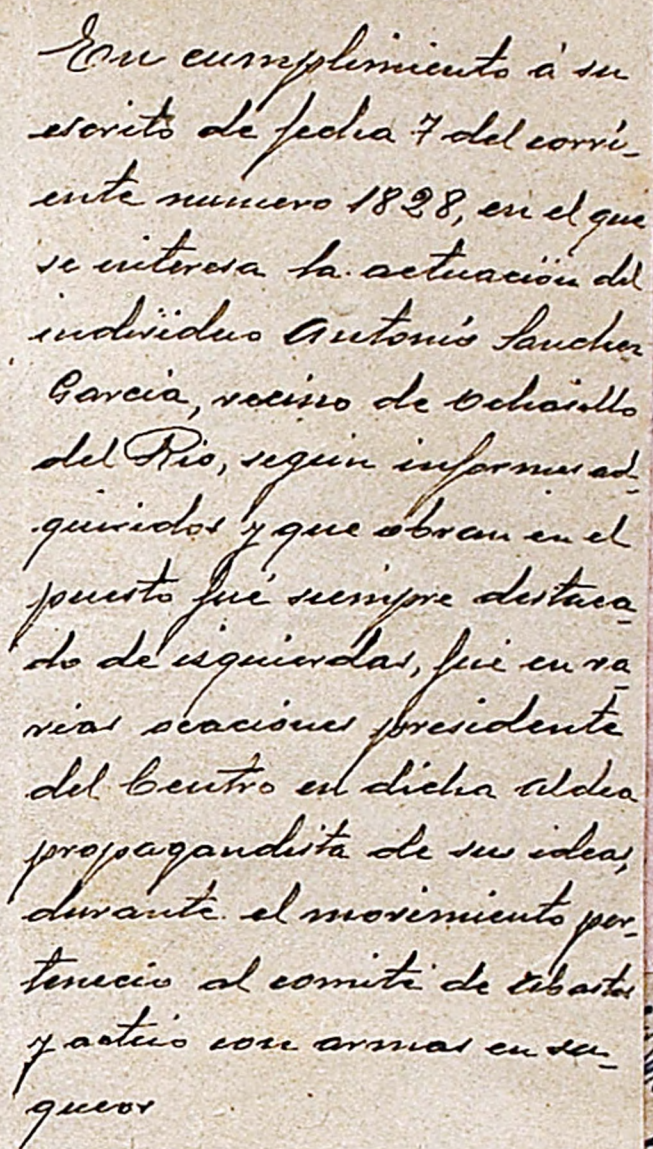 En cumplimiento á su
escrito de fecha 7 del corri-
ente numero 1828, en el que
se interesa la actuación del
individuo Antonio Sanchez
García, vecino de Ochavillo
del Rio, según informes ad-
quiridos y que obran en el
puesto fué siempre destaca-
do de izquierdas, fué en va-
rias ocaciones presidente
del Centro en dicha aldea
propagandista de sus ideas,
durante el movimiento per-
tenecio al comité de Abastos
y actuó con armas en sa-
queos